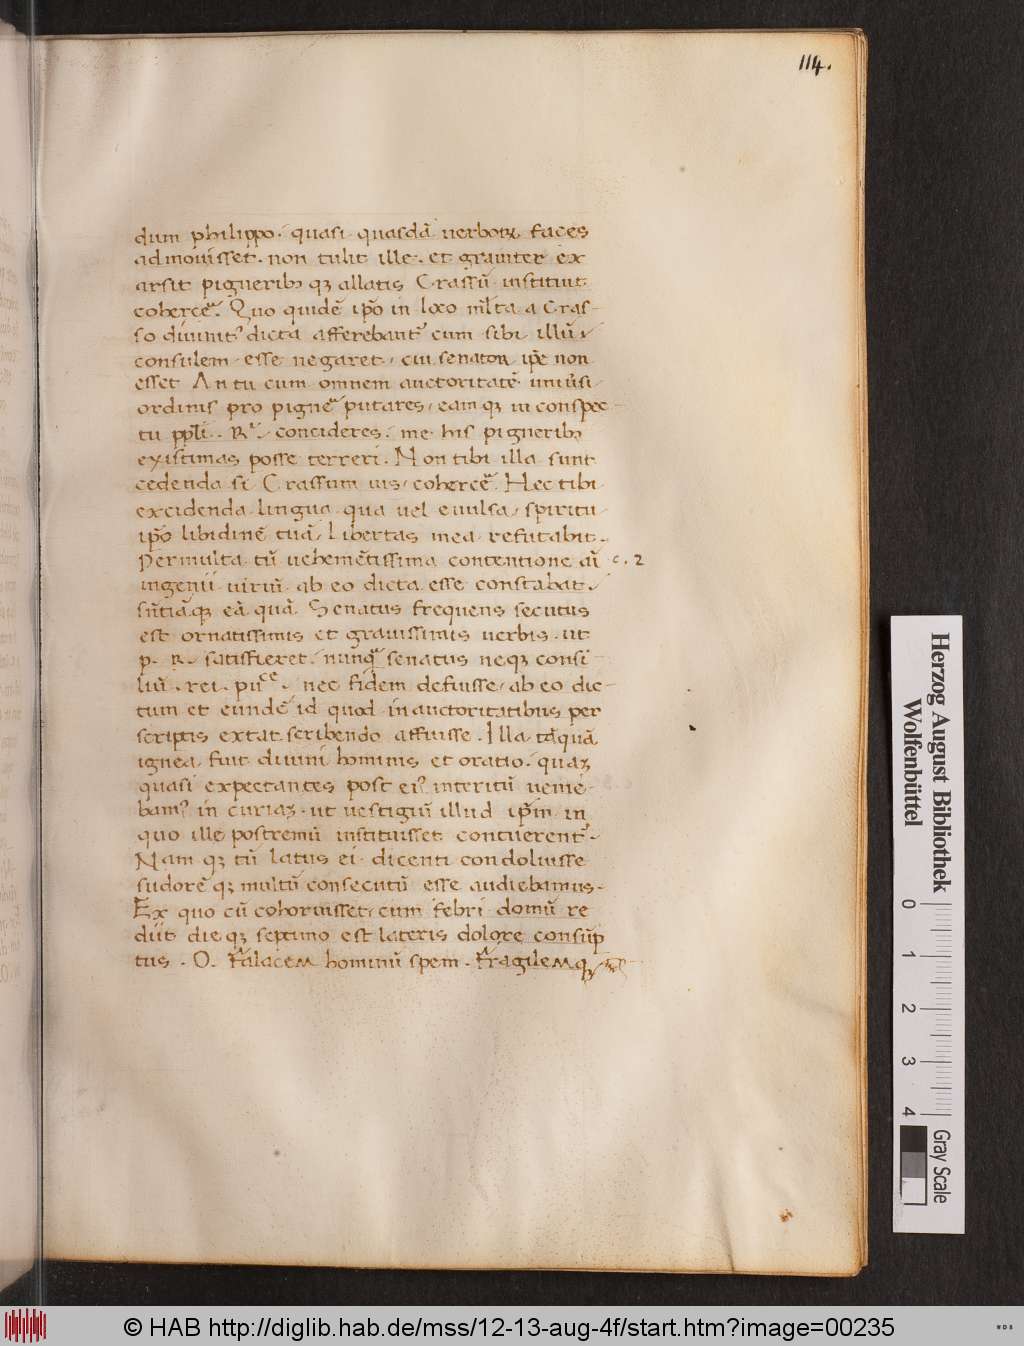 114.
dum philippo. quasi quasdã uerboꝝ faces
admouisset. non tulit ille. et grauiter ex
arsit pigneribꝫ qꝫ allatis Crassũ instituit
cohercer̃. Quo quidẽ ip̃o in loco ml̃ta a Cras-
so diuinit᾽ dicta afferebant᾽ cum sibi illũ
consulem esse negaret, cui senator ip̃e non
esset An tu cum omnem auctoritatẽ uniũsi
ordinis pro pigner̃ putares, eam qꝫ in conspec-
tu pp̃li. Rͥ. concideres. me his pigneribꝫ
existimas posse terreri. Non tibi illa sunt
cedenda si Crassum uis, cohercer̃. Hec tibi
excidenda lingua qua uel euulsa, spiritu
ip̃o libidinẽ tuã, libertas mea refutabit.
Permulta tũ uehemẽtissima contentione aĩ c. 2
ingenii uiriũ ab eo dicta esse constabat.
sñtiãqꝫ eã quã Senatus frequens secutus
est ornatissimis et grauissimis uerbis. ut
p. R. satisfieret. nunq̃ senatus neqꝫ consi-
liũ. rei. puᶜᵉ. nec fidem defuisse, ab eo dic-
tum et eundẽ id quod in auctoritatibus per
scriptis extat scribendo affuisse. Illa tãquã
ignea fuit diuini hominis et oratio. quaꝫ
quasi expectantes post ei᾽ interitũ uenie-
bam᾽ in curiaꝫ. ut uestigiũ illud ip̃m in
quo ille postremũ instituisset contuerent᾽.
Nam qꝫ tũ latus ei dicenti condoluisse
sudorẽ qꝫ multũ consecutũ esse audiebamus.
Ex quo cũ cohoruisset, cum febri domũ re
diit die qꝫ septimo est lateris dolore consũp
tus. O. Fallacem hominũ spem. Fragilemqꝫ
Herzog August Bibliothek
Wolfenbüttel
0 1 2 3 4
Gray Scale
© HAB http://diglib.hab.de/mss/12-13-aug-4f/start.htm?image=00235